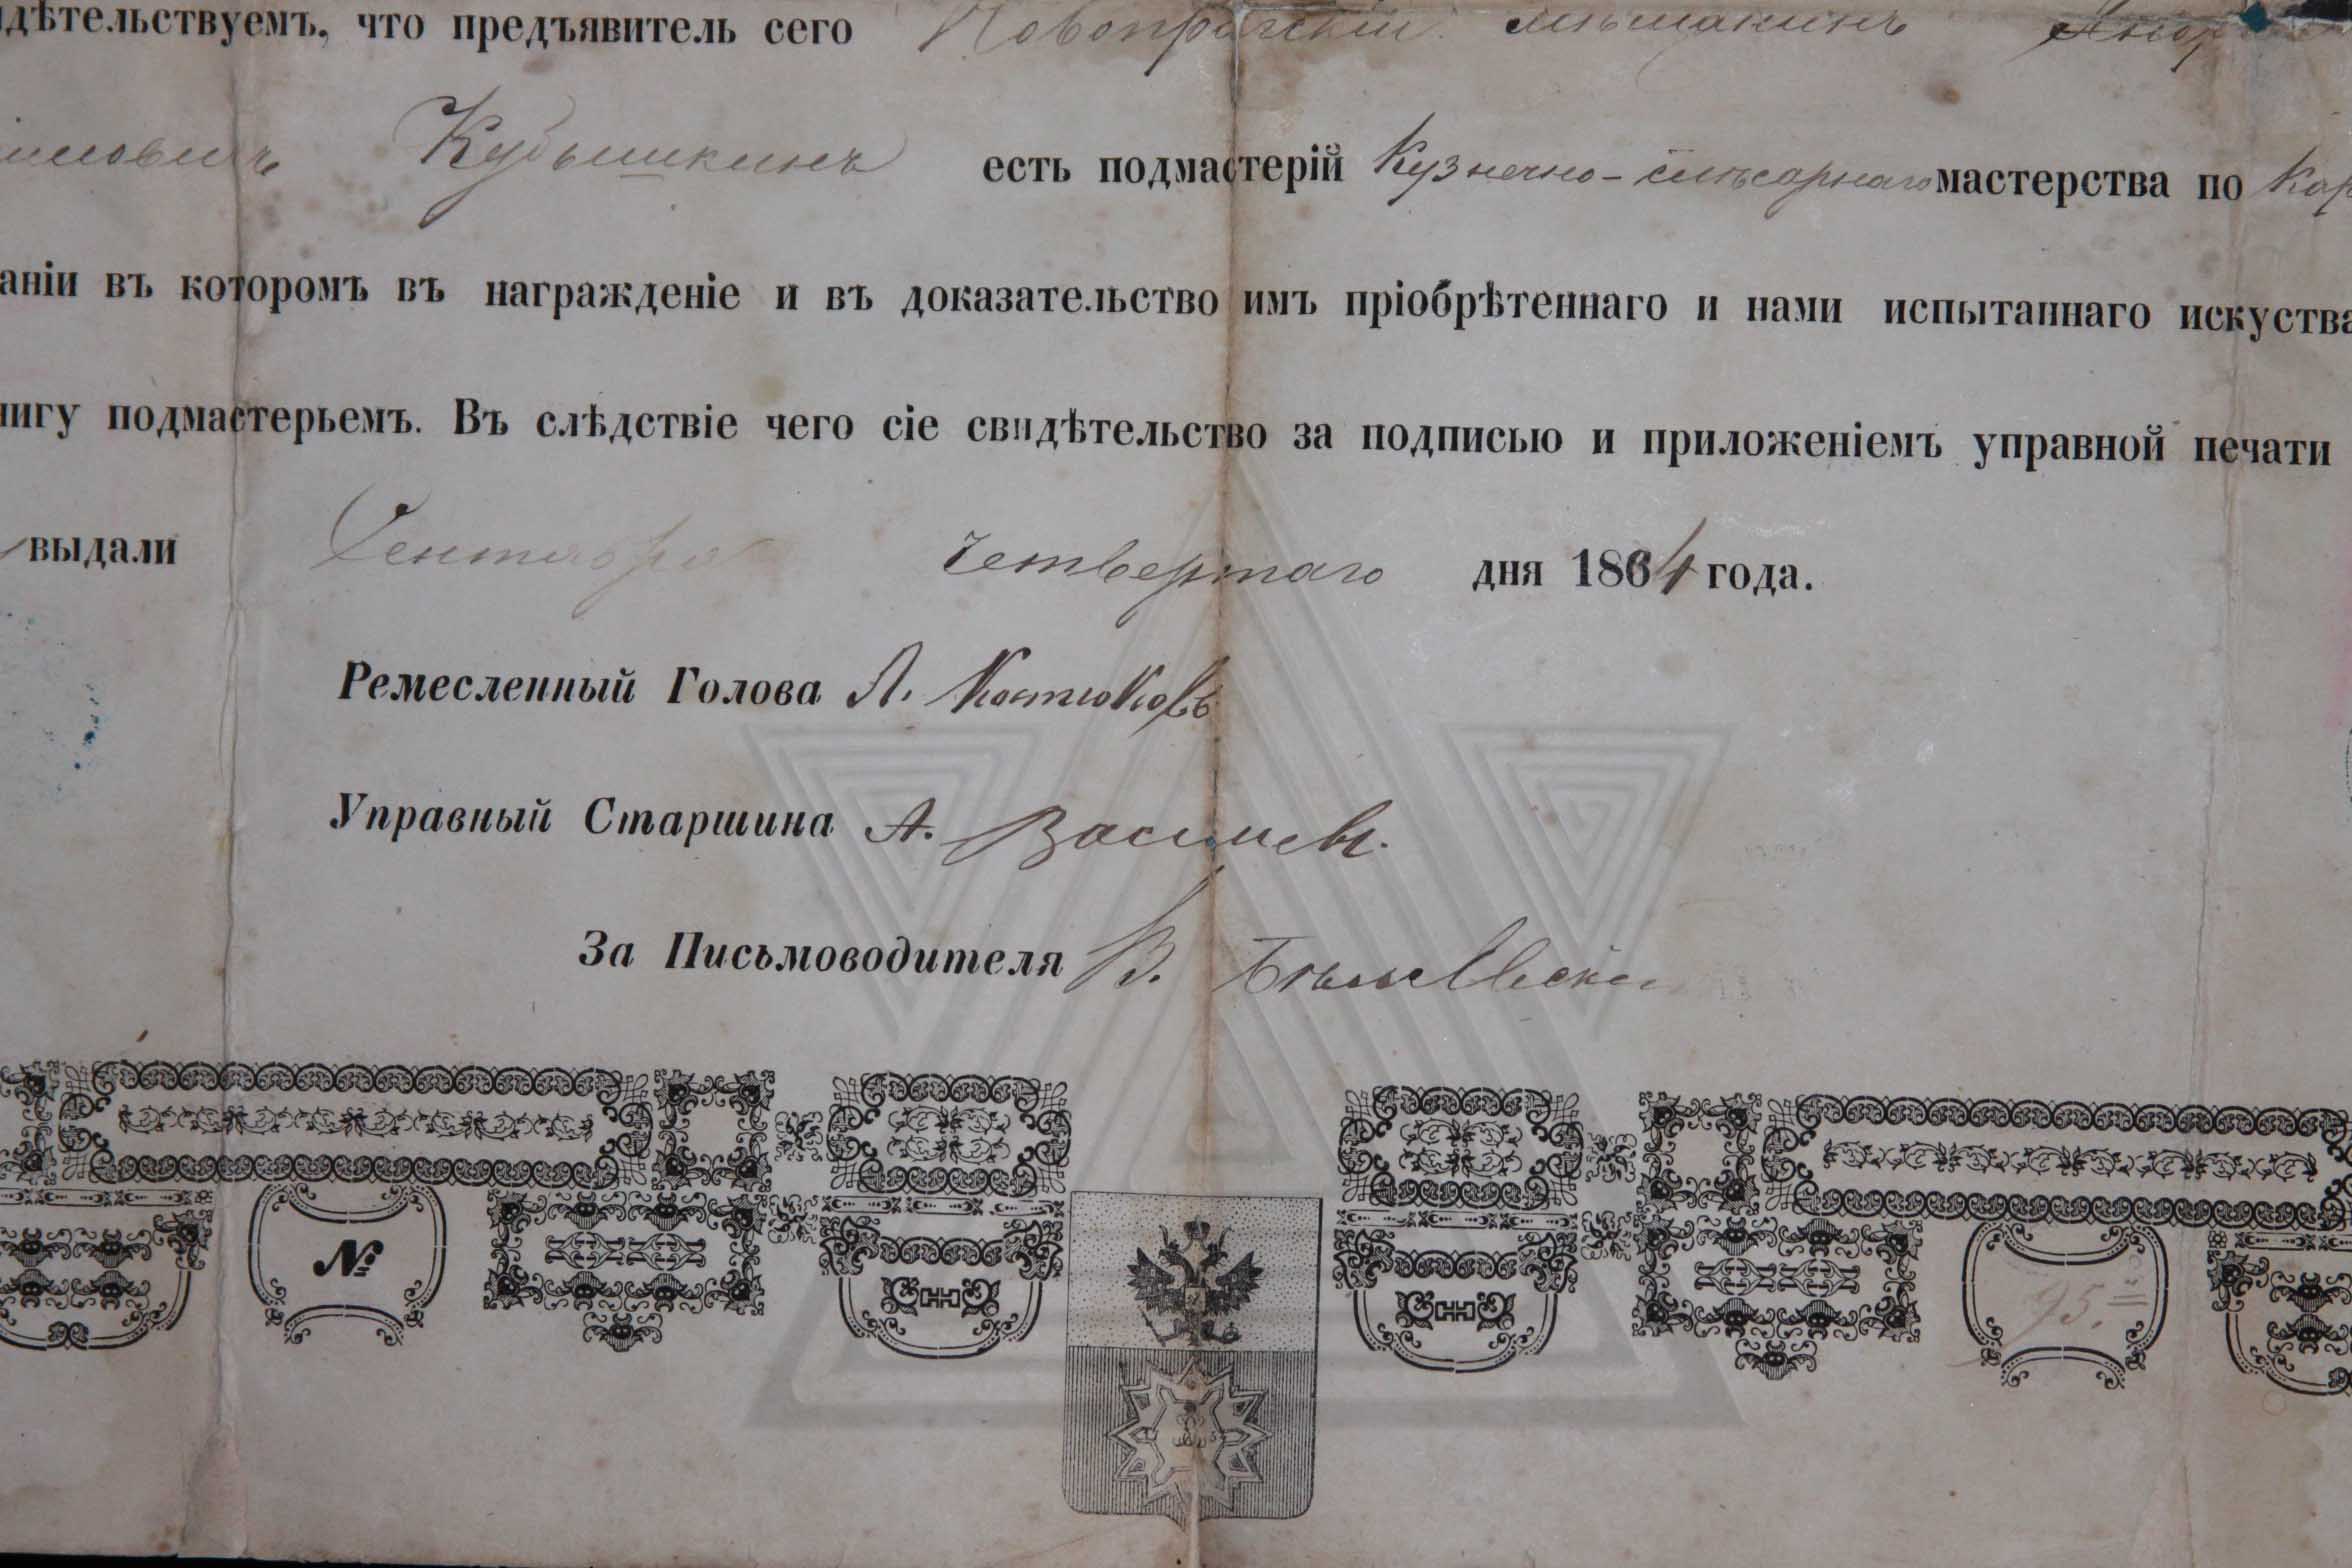 дѣтельствуемъ, что предъявитель сего Новопражскій мѣщанинъ
Кубышкинъ есть подмастерій Кузнечно-слѣсарнаго мастерства по
аніи въ которомъ въ награжденіе и въ доказательство имъ пріобрѣтеннаго и нами испытаннаго искуства
нигу подмастерьемъ. Въ слѣдствіе чего сіе свидѣтельство за подписью и приложеніемъ управной печати
выдали Сентября четвертаго дня 1864 года.
Ремесленный Голова Л. Костюковъ
Управный Старшина А. Василев.
За Письмоводителя В.
№ 95.